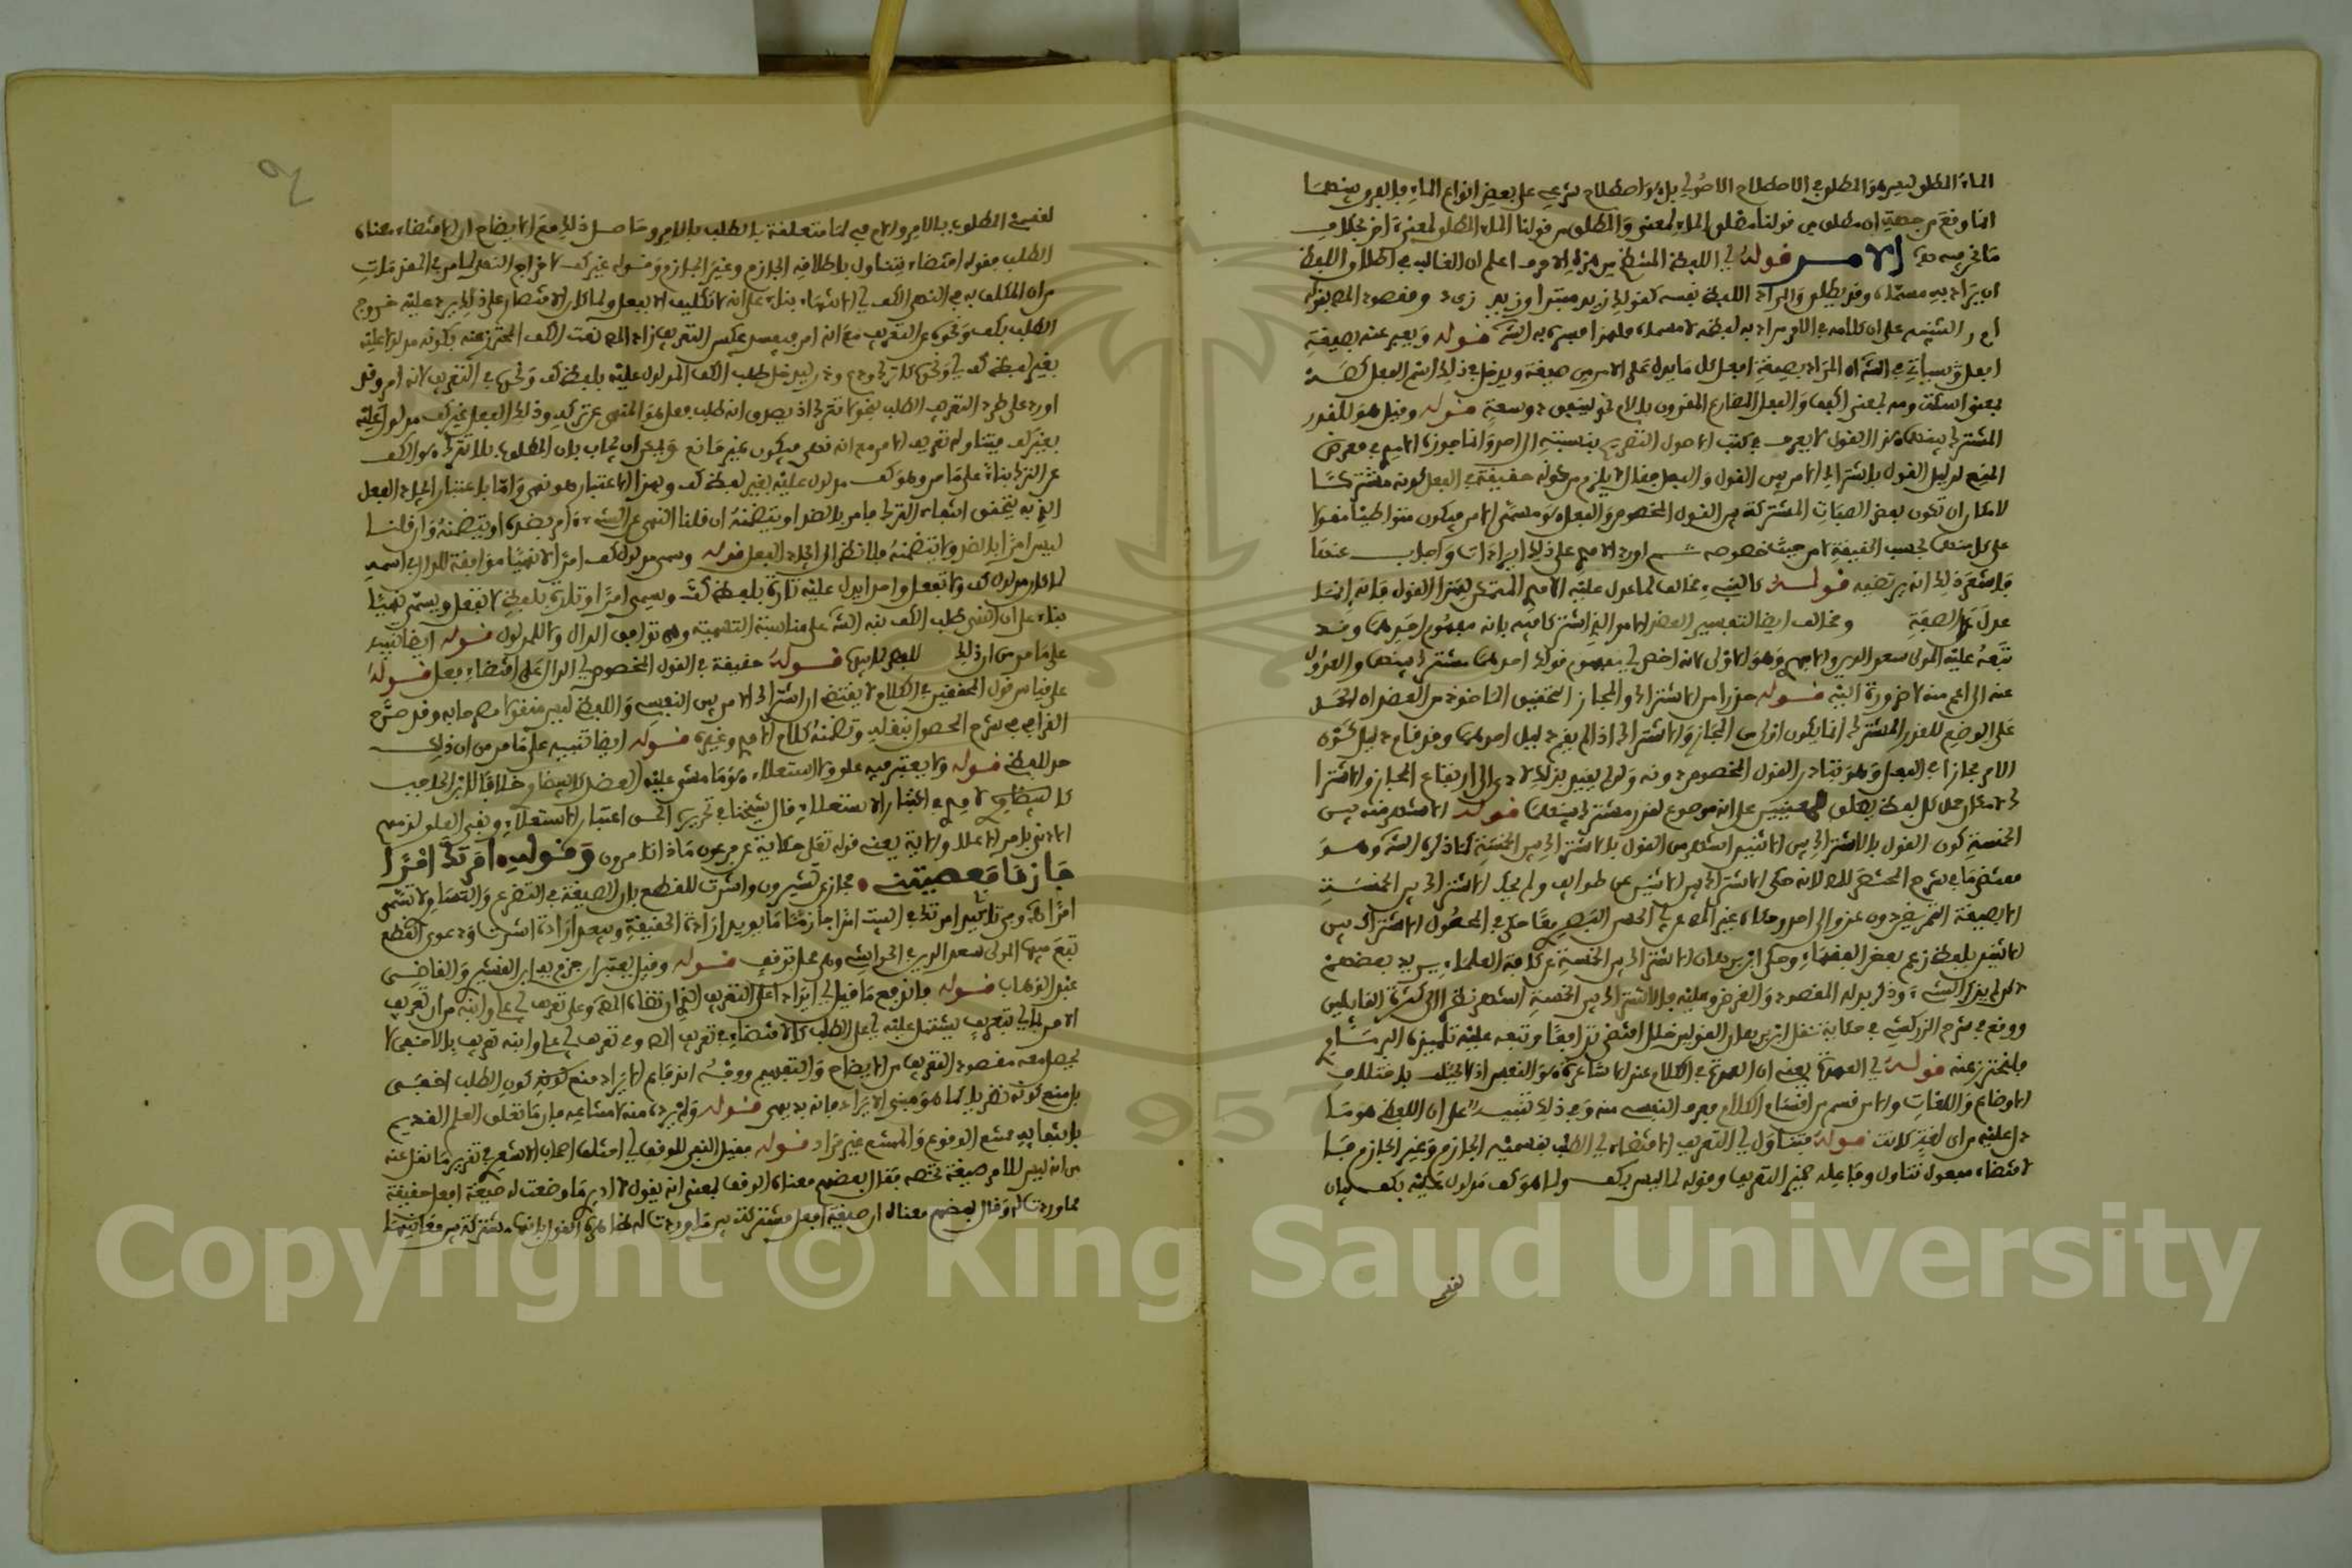 الماء المطلق ليس هو المطلق في الاصطلاح الاصولي بل هو اصطلاح شرعي على بعض انواع الماء فالفرق بينهما
انما وقع من جهة ان مطلق من قولنا مطلق الماء لمعنى والمطلق من قولنا الماء المطلق لمعنى اخر بخلاف
ما نحن فيه الامر قوله اي اللفظ المنتظم من هذه الاحرف اعلم ان الغالب في اطلاق اللفظ
ان يراد به مسماه وقد يطلق والمراد اللفظ نفسه كقولك زيد مبتدا وزيد ومقصود المص بقوله
التنبيه على ان كلامه في الامر مراد به لفظه لا مسماه فلهذا فسره به الش قوله ويعبر عنه بصيغة
افعل وسياتي في الش ان المراد بصيغة افعل كل ما يدل على الامر من صيغة ويدخل في ذلك اسم الفعل كصه
بمعنى اسكت ومه بمعنى اكفف والفعل المضارع المقرون بلام نحو لينفق ذو سعة قوله وقيل هو للقدر
المشترك بينهما هذا القول لا يعرف في كتب الاصول التصريح بنسبته الى احد وانما جوزه الامدي في معرض
المنع لدليل القول باشتراك الامر بين القول والفعل فقال لا يلزم من كونه حقيقة في الفعل كونه مشتركا
لامكان ان تكون بعض الصفات المشتركة بين القول المخصوص والفعل هو مسمى الامر فيكون متواطئا مقولا
على كل منهما بحسب الحقيقة لا من حيث خصوصه ثم اورد الامدي على ذلك ايرادات واجاب عنها
فاشعر ذلك انه يرتضيه قوله كالشيء مخالف لما عول عليه الامدي المتمسك بهذا القول فانه انما
عول على الصفة ومخالف ايضا لتفسير العضد الامر الذي اشتركا فيه بانه مفهوم احدهما وقد
تبعه عليه المولى سعد الدين والابهري وهو الاولى لانه اخص في مفهوم قولك احدهما مشترك بينهما والعدول
عنه الى اعم منه لا ضرورة اليه قوله حذرا من الاشتراك والمجاز التحقيق الماخوذ من العضد ان الحمل
على الوضع للقدر المشترك انما يكون اولى من المجاز والاشتراك اذا لم يقم دليل احدهما وقد قام دليل كون
الامر مجازا في الفعل وهو تبادر القول المخصوص دونه ولو لم يقيد بذلك لادى الى ارتفاع المجاز والاشترا
ك لامكان حمل كل لفظ يطلق لمعنيين على انه موضوع لقدر مشترك بينهما قوله الاشعر منه بين
الخمسة كون القول بالاشتراك بين الاثنين اشهر من القول بالاشتراك بين الخمسة كما ذكره الش وهو
مقتضى ما في شرح المختصر للمص لانه حكى الاشتراك بين الاثنين عن طوائف ولم يحك الاشتراك بين الخمسة
الا بصيغة التمريض دون عزو الى احد وحكاه غيره عن ابي الحسين البصري وقال في المحصول الاشتراك بين
الاثنين بلفظ زعم بعض الفقهاء وحكى ابن برهان الاشتراك بين الخمسة عن كافة العلماء يريد بعضهم
ولم يذكر الشيء وذكر بدله المقصود والغرض وعليه فالاشتراك بين الخمسة اشهر نظرا الى كثرة القائلين
ووقع في شرح الزركشي في حكاية نقل ابن برهان القولين خلل اقتضى تدافعا وتبعه عليه تلميذه البرماوي
فلتحترز عنه قوله في العمدة يعني ان العمدة في الكلام عند الاشاعرة هو النفسي اذ لا يختلف باختلاف
الاوضاع واللغات والامر قسم من اقسام الكلام فحده النفسي منه وفي ذلك تنبيه على ان اللفظي هو ما
دل عليه من اي لغة كانت قوله يتناول اي التعريف الاقتضاء اي الطلب بقسميه الجازم وغير الجازم فا
لاقتضاء مفعول تناول وفاعله ضمير التعريف وقوله لما ليس بكف ولما هو كف مدلول عليه بكف بيان
لقسمي
لقسمي المطلوب بالامر واللام فيه لما متعلقة بالطلب بالامر وحاصل ذلك مع الايضاح ان الاقتضاء معناه
الطلب فقوله اقتضاء يتناول باطلاقه الجازم وغير الجازم وقوله غير كف لاخراج النهي لما مر في المقدمات
من ان المكلف به في النهي الكف اي الانتهاء بناء على انه لا تكليف الا بفعل ولما كان الاقتصار على ذلك يرد عليه خروج
الطلب بكف ونحوه عن التعريف مع انه امر فيفسد عكس التعريف زاد المص نعت الكف المحترز عنه بكونه مدلولا عليه
بغير لفظ كف اي ونحوها كاترك ودع وذر ليدخل طلب الكف المدلول عليه بلفظ كف ونحوها في التعريف لانه امر وقد
اورد على طرد التعريف الطلب بنحو لا تترك اذ يصدق انه طلب فعل هو المنهي عن تركه وذلك الفعل غير كف مدلول عليه
بغير كف فيتناوله تعريف الامر مع انه نهي فيكون غير مانع ويمكن ان يجاب بان المطلوب بلا تترك هو الكف
عن الترك بناء على ما مر وهو كف مدلول عليه بغير لفظ كف وبهذا الاعتبار هو نهي واما باعتبار ايجاد الفعل
الذي به يتحقق انتفاء الترك فامر بالضد او يتضمنه ان قلنا النهي عن الشيء امر بضده او يتضمنه وان قلنا
ليس امرا بالضد ولا يتضمنه فلا نظر الى ايجاد الفعل قوله وسمي مدلول كف امرا لا نهيا موافقة للدال في اسمه
لما كان مدلول كف ولا تفعل واحدا يدل عليه تارة بلفظ كف ويسمى امرا وتارة بلفظ لا تفعل ويسمى نهيا
بناء على ان النهي طلب الكف نبه الش على مناسبة التسمية وهي توافق الدال والمدلول قوله ايضا تنبيه
على ما مر من ان ذلك قوله حقيقة في القول المخصوص اي الدال على اقتضاء فعل قوله
على قياس قول المحققين في الكلام لا يقتضي ان اشتراك الامر بين النفسي واللفظي ليس منقولا مصرحا به وقد صرح
القرافي في شرح المحصول بنقله وتضمنه كلام الامدي وغيره قوله ايضا تنبيه على ما مر من ان ذلك
حد اللفظي قوله ولا يعتبر فيه علو ولا استعلاء هو ما مشى عليه العضد كالبيضاوي خلافا لابن الحاجب
كالامدي في اعتبار الاستعلاء قال شيخنا في تحريره الحق اعتبار الاستعلاء ونفي العلو لذمهم
الادنى بامر الاعلى والاية يعني قوله تعالى حكاية عن فرعون ماذا تامرون وقوله امرتك امرا
جازما فعصيتني مجاز عن تشيرون واشرت للقطع بان الصيغة في التضرع والتساوي لا تسمى
امرا اه وفي تاكيد امرتك في البيت امرا جازما ما يؤيد ارادة الحقيقة ويبعد ارادة اشرت ودعوى القطع
تبع فيها المولى سعد الدين في الحواشي وهو محل توقف قوله وقيل يعتبران جزم به ابن القشيري والقاضي
عبد الوهاب قوله
الامر
يحصل معه مقصود التعريف من الايضاح والتفهيم
بل منع كونه نظريا كما هو مبنى الايراد فانه بديهي قوله ولم يرده منه لامتناعه فان ما تعلق العلم القديم
بانتفائه ممتنع الوقوع والممتنع غير مراد قوله فقيل النفي للوقف اي اختلف اصحاب الاشعري في تقرير ما نقل عنه
من انه ليس للامر صيغة تخصه فقال بعضهم معناه الوقف بمعنى انه يقول لا ادري ما وضعت له صيغة افعل حقيقة
مما وردت له وقال بعضهم معناه ان صيغة افعل مشتركة بين ما وردت له
Copyright © King Saud University
1957